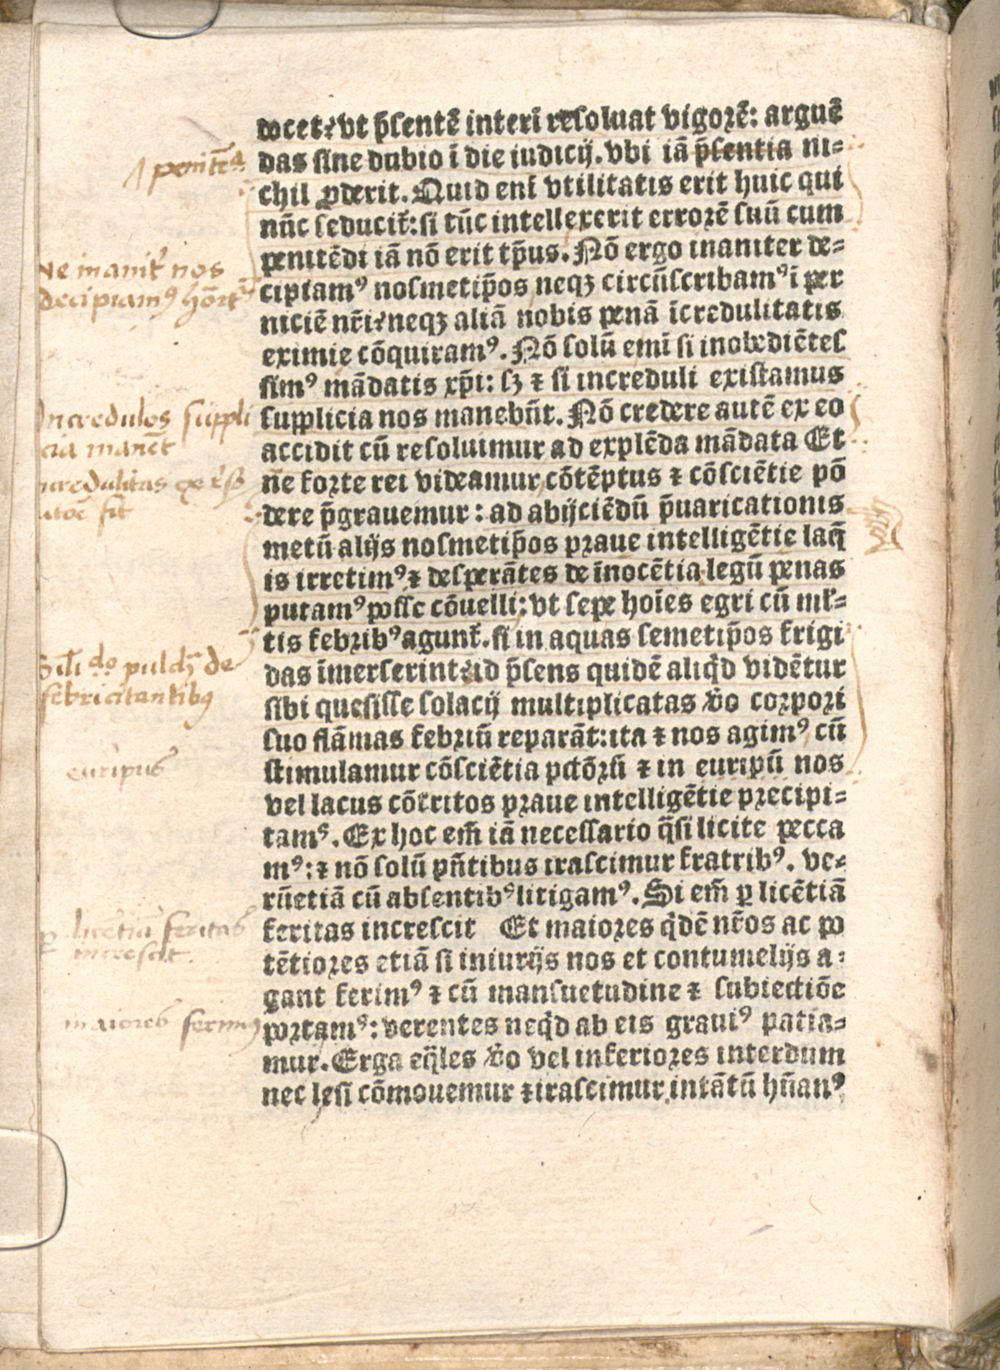 docet: vt p̄sentē interī resoluat vigorē: arguē
das sine dubio ī die iudicij. vbi iā p̄sentia ni-
chil ꝓderit. Quid enī vtilitatis erit huic qui
nūc seducit̄: si tūc intellexerit errorē suū cum
penitēdi iā nō erit tp̄us. Nō ergo inaniter de-
cipiamꝰ nosmetip̄os neqꝫ circūscribamꝰ ī per
niciē nr̄i: neqꝫ aliā nobis penā īcredulitatis
eximie cōquiramꝰ. Nō solū emī si inobediētes
simꝰ mādatis xp̄i: sꝫ ⁊ si increduli existamus
supplicia nos manebūt. Nō credere autē ex eo
accidit cū resoluimur ad explēda mādata Et
ne forte rei videamur cōtēptus ⁊ cōsciētie pō
dere p̄grauemur: ad abijciēdū p̄uaricationis
metū alijs nosmetip̄os praue intelligētie laq̄
is irretimꝰ ⁊ desperātes de īnocētia legū penas
putamꝰ posse cōuelli: vt sepe hoīes egri cū ml̄-
tis febribꝰ agunt̄. si in aquas semetip̄os frigi
das īmerserint: id p̄sens quidē aliq̄d vidētur
sibi quesisse solacij multiplicatas v̄o corpori
suo flāmas febriū reparāt: ita ⁊ nos agimꝰ cū
stimulamur cōsciētia pctōrū ⁊ in euripū nos
vel lacus cōtritos praue intelligētie precipi-
tamꝰ. Ex hoc em̄ iā necessario q̄si licite pecca
mꝰ: ⁊ nō solū pn̄tibus irascimur fratribꝰ. ve-
rūetiā cū absentibꝰ litigamꝰ. Si em̄ ꝑ licētiā
feritas increscit Et maiores q̄dē nr̄os ac po
tētiores etiā si iniurijs nos et contumelijs a-
gant ferimꝰ ⁊ cū mansuetudine ⁊ subiectiōe
portamꝰ: verentes neq̄d ab eis grauiꝰ patia-
mur. Erga eq̄les v̄o vel inferiores interdum
nec lesi cōmouemur ⁊ irascimur intātū hūanꝰ
Ne inanit̄ nos
decipiamꝰ
Incredulos suppli
cia manēt
sit
pulch̄ de
febricitantibꝰ
euripus
ꝑ licētiā feritas
increscit
maiores ferimꝰ